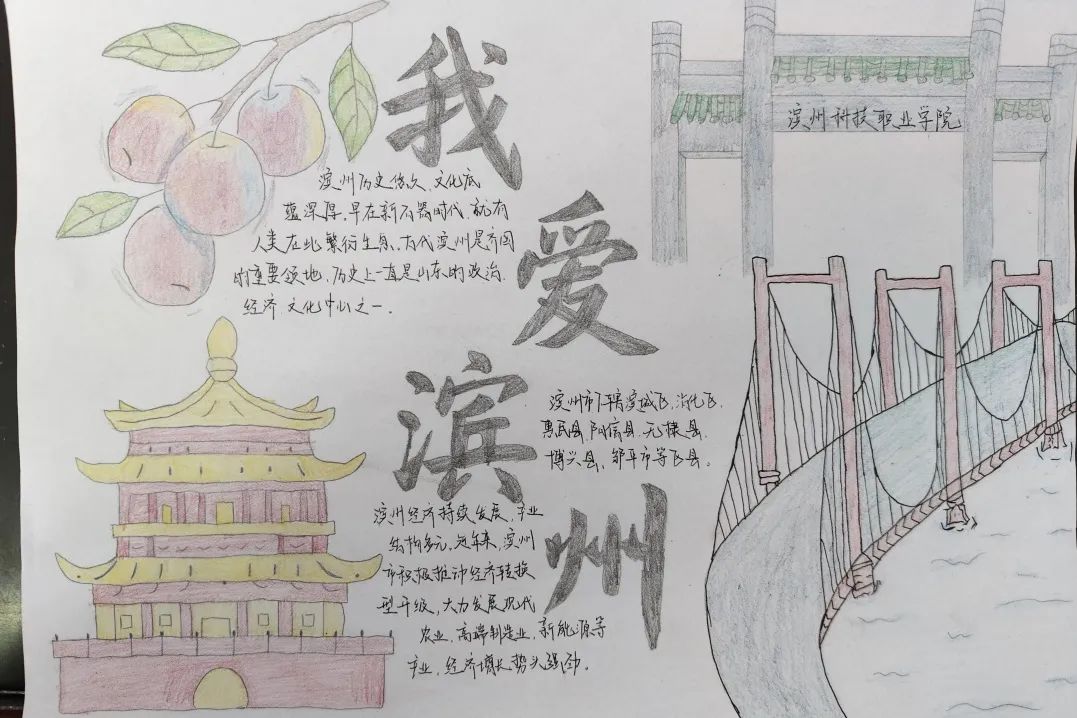 我
爱
滨
州
滨州科技职业学院
滨州历史悠久、文化底
蕴深厚,早在新石器时代,就有
人类在此繁衍生息、古代滨州是齐国
的重要领地,历史上一直是山东的政治、
经济、文化中心之一。
滨州市下辖滨城区、沾化区、
惠民县、阳信县、无棣县、
博兴县、邹平市等区县。
滨州经济持续发展,产业
结构多元,近年来,滨州
市积极推动经济转换
型升级,大力发展现代
农业、高端制造业、新能源等
产业,经济增长势头强劲。